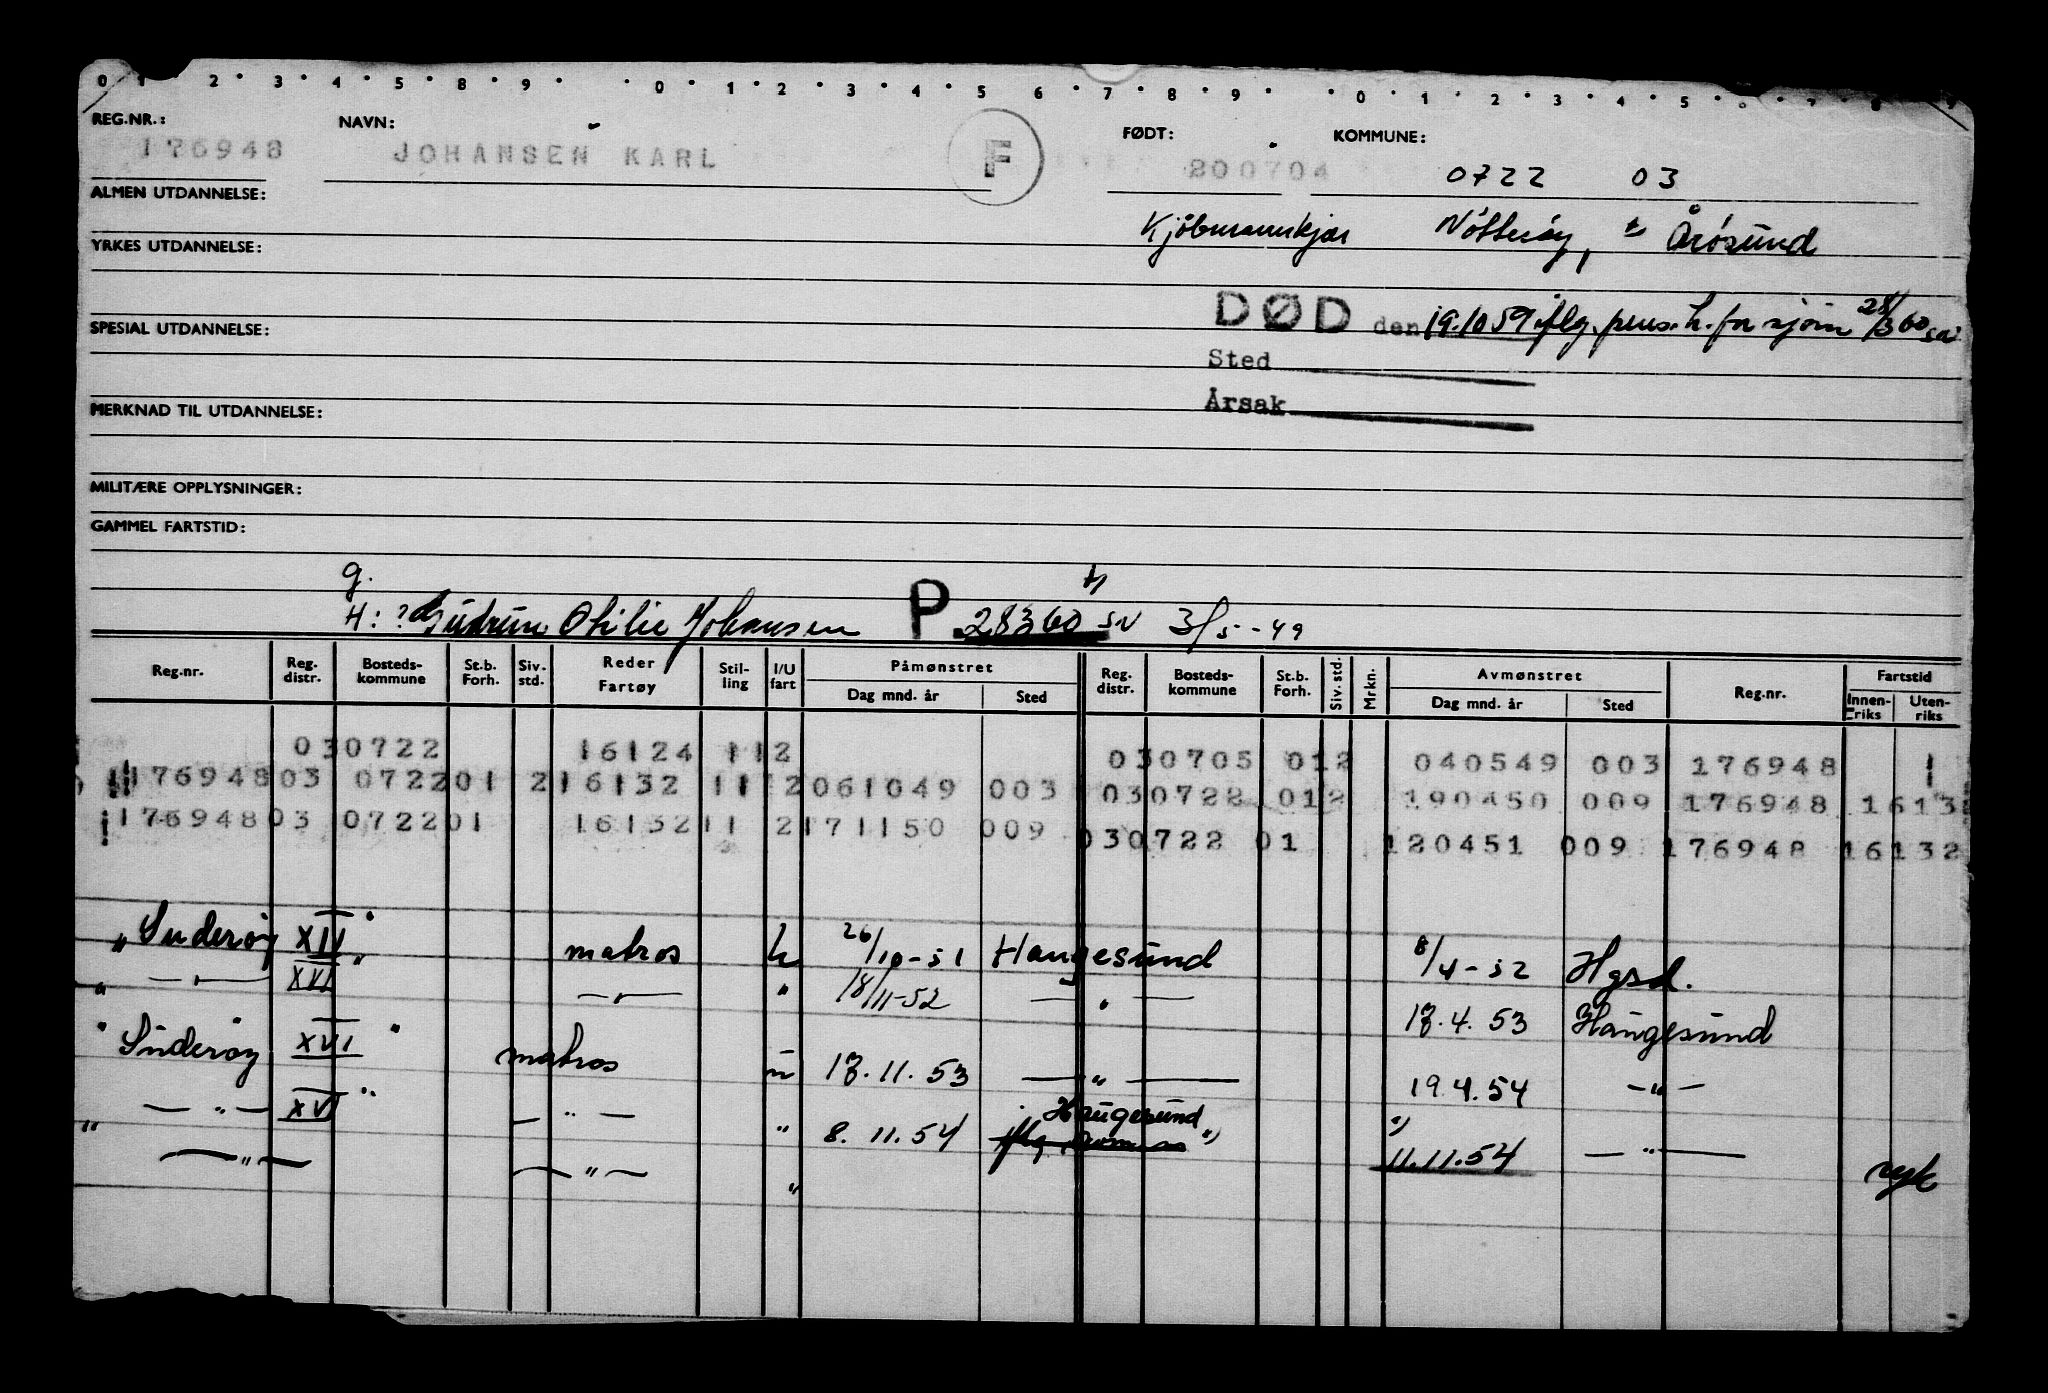 0 1 2 3 4 5 8 9 0 1 2 3 4 5 6 7 8 9 0 1 2 3 4 5
REG.NR.: NAVN: FØDT: KOMMUNE:
176948 JOHANSEN KARL F 200704 0722 03
ALMEN UTDANNELSE:
Kjöbmannskjær Nötteröy, Årösund
YRKES UTDANNELSE:
DØD den 19.10 59 iflg. pens. h. for sjöm 28/3 60 sa
SPESIAL UTDANNELSE:
Sted
Årsak
MERKNAD TIL UTDANNELSE:
MILITÆRE OPPLYSNINGER:
GAMMEL FARTSTID:
g.
H: ? Gudrun Otilie Johansen P 28360 SN 3/5-49
Reg.nr. Reg. distr. Bosteds-kommune St.b. Forh. Siv. std. Reder Fartøy Stil-ling I/U fart Påmønstret Dag mnd. år Sted Reg. distr. Bosteds-kommune St.b. Forh. Siv. std. Mrkn. Avmønstret Dag mnd. år Sted Reg.nr. Fartstid Innen-riks Uten-riks
030722 16124 112 030705 012 040549 003 176948 1
176948 03 0722 01 2 16132 11 2 061049 003 030722 012 190450 009 176948 1613
176948 03 0722 01 16132 11 2 171150 009 030722 01 120451 009 176948 16132
"Suderøy XIV" matros u 26/10-51 Haugesund 8/4-52 Hgsd.
" —"— XVI" —"— " 18/11-52 — " — 17.4.53 Haugesund
"Suderøy XVI" matros u 17.11.53 — " — 19.4.54 — " —
" — " — XVI" — " — " 8.11.54 Haugesund ") ") 11.11.54 — " — syk
— " — — " — "